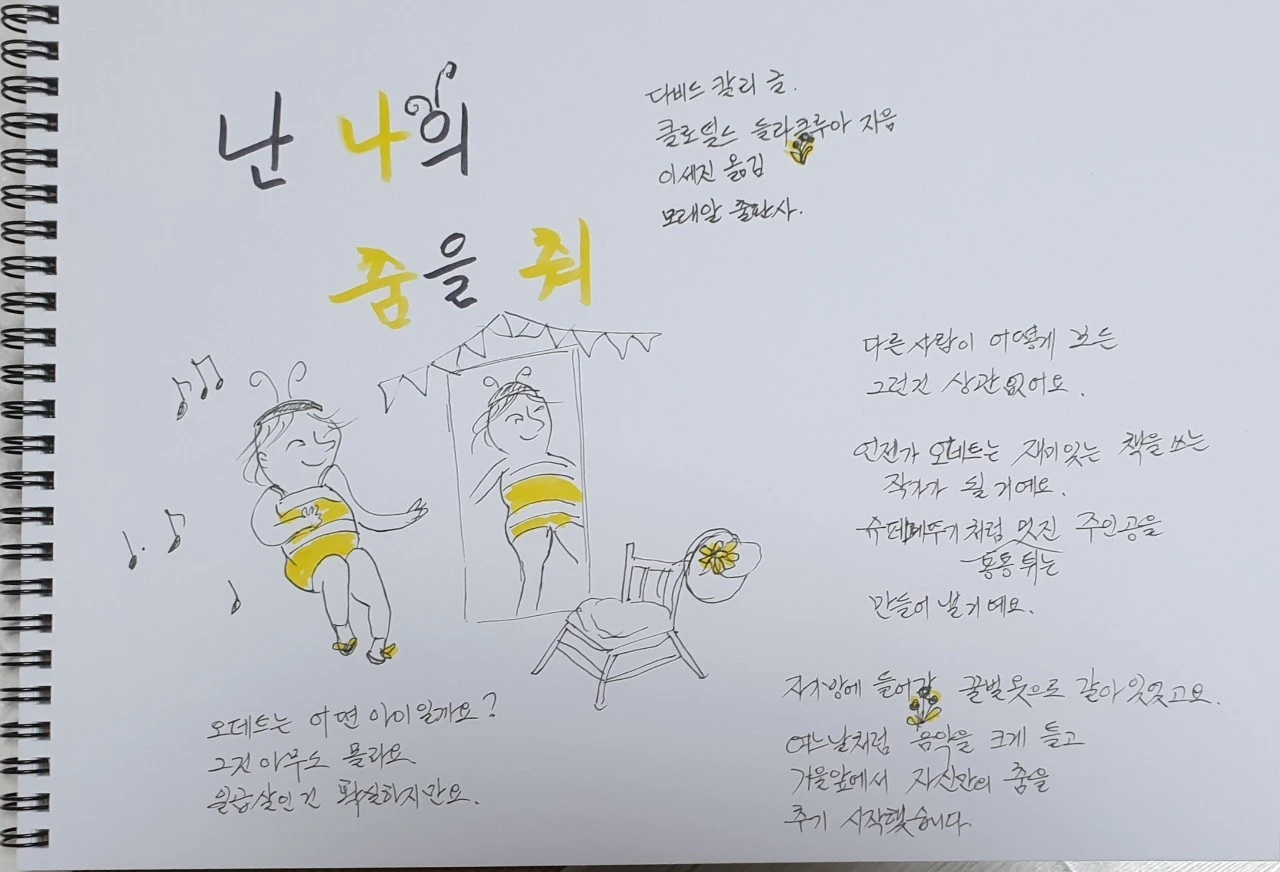 난 나의
춤을 춰
다비드 칼리 글.
클로틸드 들라크루아 지음
이세진 옮김
모래알 출판사.
다른사람이 어떻게 보든
그런건 상관없어요.
언젠가 오데트는 재미있는 책을 쓰는
작가가 될 거예요.
슈퍼메뚜기처럼 멋진 주인공을
통통튀는
만들어 낼거예요.
자기방에 들어가 꿀벌 옷으로 갈아 입었고요.
여느날처럼 음악을 크게 틀고
거울앞에서 자신만의 춤을
추기 시작했습니다.
오데트는 어떤 아이일까요?
그건 아무도 몰라요.
일곱살인건 확실하지만요.